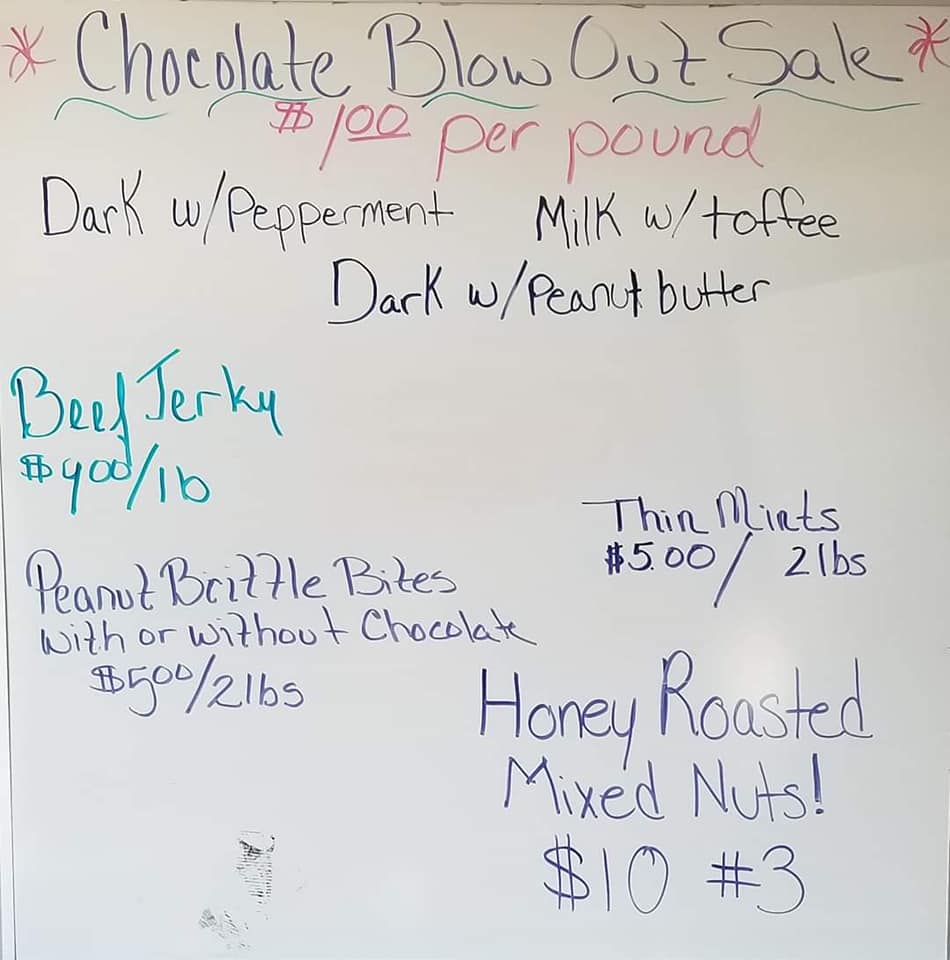 * Chocolate Blow Out Sale *
$1.00 per pound
Dark w/Pepperment
Milk w/toffee
Dark w/Peanut butter
Beef Jerky
$400/lb
Thin Mints
$5.00/ 2lbs
Peanut Brittle Bites
with or without Chocolate
$500/2lbs
Honey Roasted
Mixed Nuts!
$10 #3